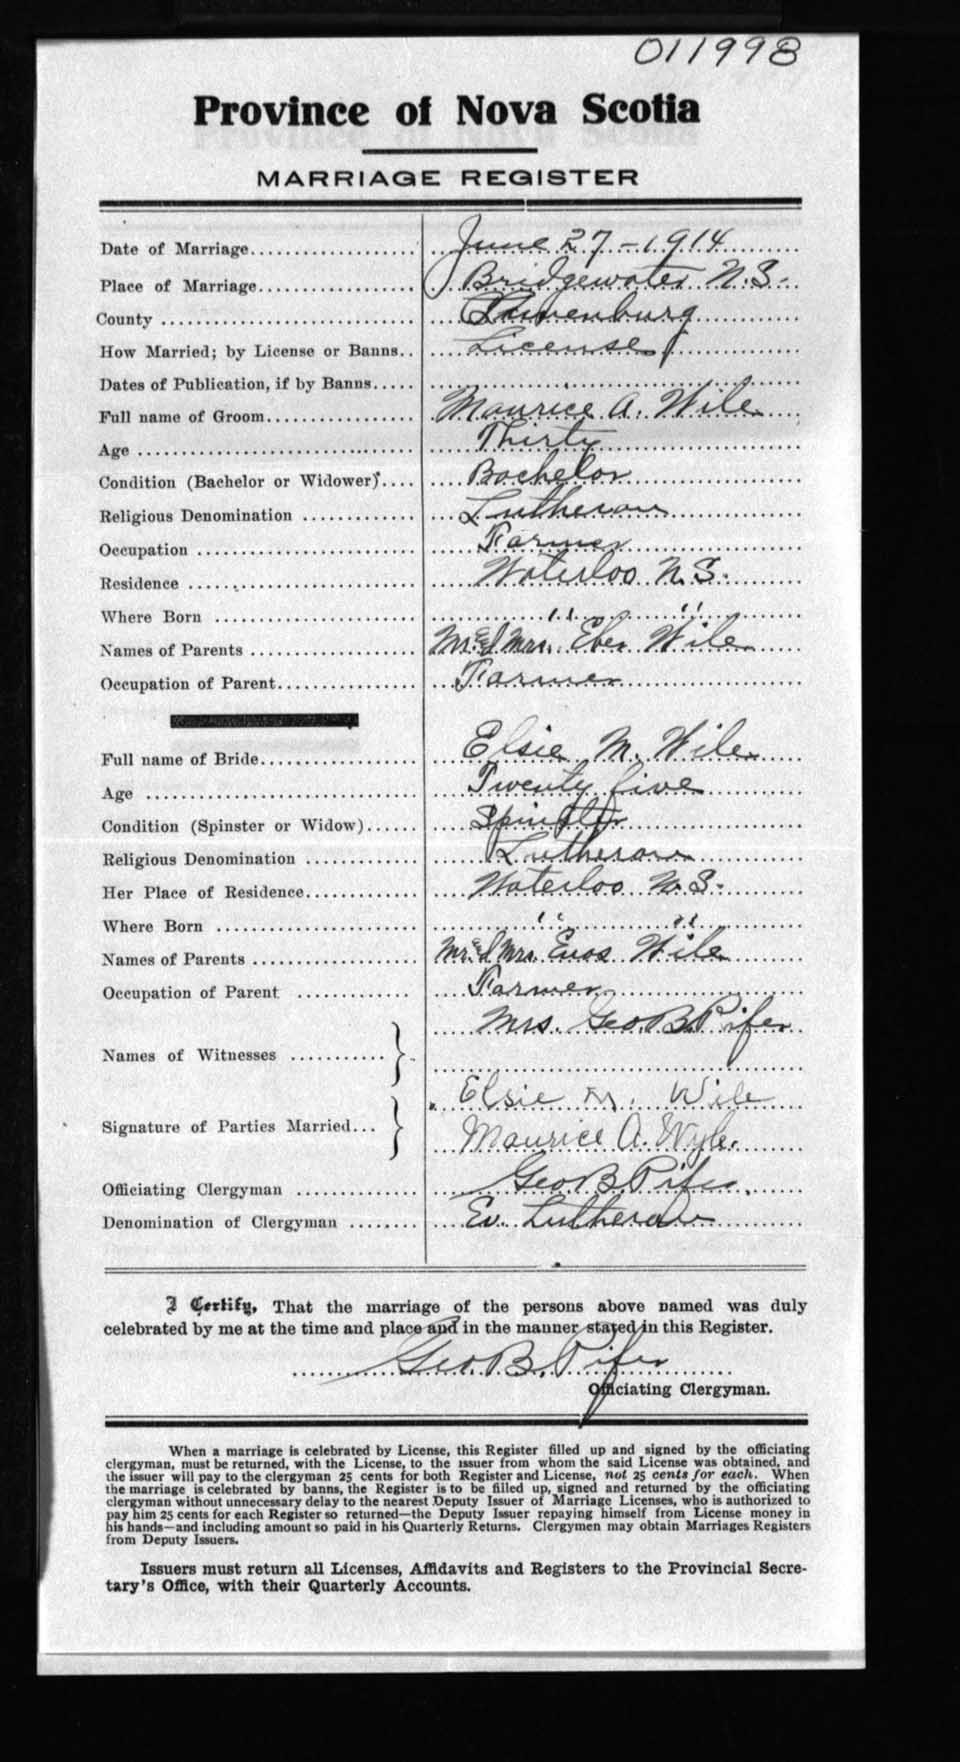 011998
Province of Nova Scotia
MARRIAGE REGISTER
Date of Marriage.................... June 27 - 1914
Place of Marriage.................. Bridgewater N.S.
County .............................. Lunenburg
How Married; by License or Banns.. License
Dates of Publication, if by Banns.....
Full name of Groom.................. Maurice A. Wile
Age ................................. Thirty
Condition (Bachelor or Widower).... Bachelor
Religious Denomination .............. Lutheran
Occupation .......................... Farmer
Residence ........................... Waterloo N.S.
Where Born ........................ " "
Names of Parents .................... Mr. & Mrs. Eber Wile
Occupation of Parent................. Farmer
Full name of Bride................... Elsie M. Wile
Age ................................. Twenty five
Condition (Spinster or Widow)...... Spinster
Religious Denomination ............. Lutheran
Her Place of Residence............. Waterloo N.S.
Where Born ........................ " "
Names of Parents .................... Mr. & Mrs. Enos Wile
Occupation of Parent ............. Farmer
Names of Witnesses ........... } Mrs. Geo. B. Pifer
Signature of Parties Married... } Elsie M. Wile
Maurice A. Wyle.
Officiating Clergyman .............. Geo B Pifer.
Denomination of Clergyman ........ Ev. Lutheran
I Certify, That the marriage of the persons above named was duly
celebrated by me at the time and place and in the manner stated in this Register.
Geo. B. Pifer
Officiating Clergyman.
When a marriage is celebrated by License, this Register filled up and signed by the officiating
clergyman, must be returned, with the License, to the issuer from whom the said License was obtained, and
the issuer will pay to the clergyman 25 cents for both Register and License, not 25 cents for each. When
the marriage is celebrated by banns, the Register is to be filled up, signed and returned by the officiating
clergyman without unnecessary delay to the nearest Deputy Issuer of Marriage Licenses, who is authorized to
pay him 25 cents for each Register so returned—the Deputy Issuer repaying himself from License money in
his hands—and including amount so paid in his Quarterly Returns. Clergymen may obtain Marriages Registers
from Deputy Issuers.
Issuers must return all Licenses, Affidavits and Registers to the Provincial Secre-
tary's Office, with their Quarterly Accounts.